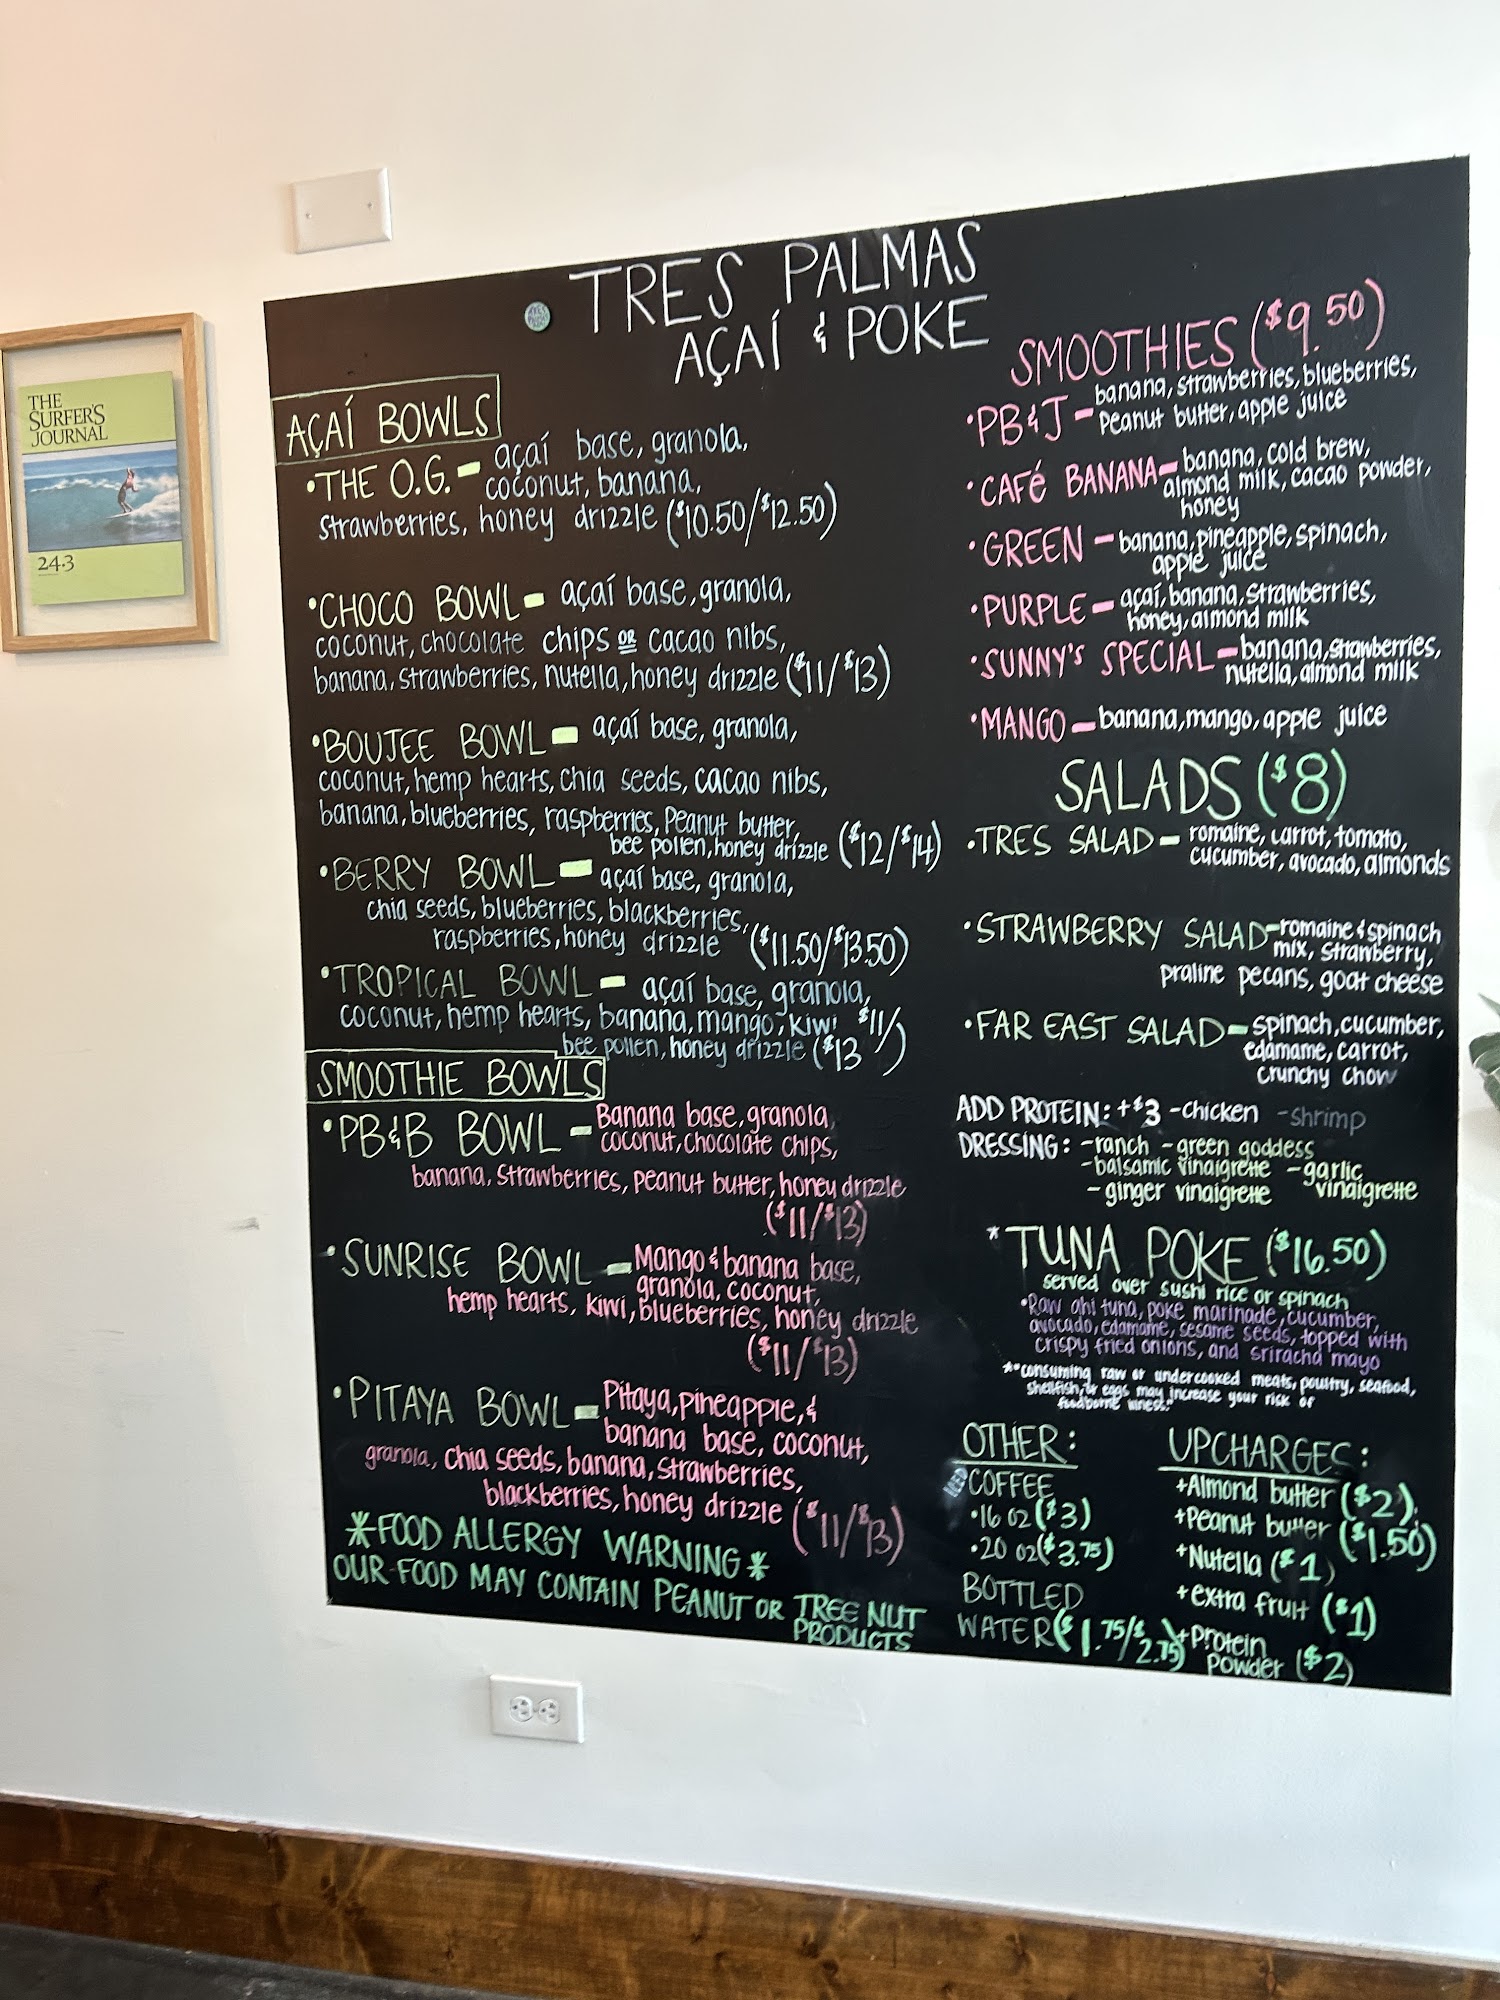 THE
SURFER'S
JOURNAL
24.3
TRES PALMAS
AÇAÍ & POKE
AÇAÍ BOWLS
•THE O.G. - açaí base, granola,
coconut, banana,
strawberries, honey drizzle ($10.50/$12.50)
•CHOCO BOWL - açaí base, granola,
coconut, chocolate chips or cacao nibs,
banana, strawberries, nutella, honey drizzle ($11/$13)
•BOUJEE BOWL - açaí base, granola,
coconut, hemp hearts, chia seeds, cacao nibs,
banana, blueberries, raspberries, Peanut butter,
bee pollen, honey drizzle ($12/$14)
•BERRY BOWL - açaí base, granola,
chia seeds, blueberries, blackberries,
raspberries, honey drizzle ($11.50/$13.50)
•TROPICAL BOWL - açaí base, granola,
coconut, hemp hearts, banana, mango, kiwi
bee pollen, honey drizzle ($11/$13)
SMOOTHIE BOWLS
•PB&B BOWL - Banana base, granola,
coconut, chocolate chips,
banana, strawberries, peanut butter, honey drizzle
($11/$13)
•SUNRISE BOWL - Mango & banana base,
granola, coconut,
hemp hearts, kiwi, blueberries, honey drizzle
($11/$13)
•PITAYA BOWL - Pitaya, pineapple, &
banana base, coconut,
granola, chia seeds, banana, strawberries,
blackberries, honey drizzle ($11/$13)
*FOOD ALLERGY WARNING*
OUR FOOD MAY CONTAIN PEANUT OR TREE NUT
PRODUCTS
SMOOTHIES ($9.50)
•PB&J - banana, strawberries, blueberries,
Peanut butter, apple juice
•CAFé BANANA - banana, cold brew,
almond milk, cacao powder,
honey
•GREEN - banana, pineapple, spinach,
apple juice
•PURPLE - açaí, banana, strawberries,
honey, almond milk
•SUNNY'S SPECIAL - banana, strawberries,
nutella, almond milk
•MANGO - banana, mango, apple juice
SALADS ($8)
•TRES SALAD - romaine, carrot, tomato,
cucumber, avocado, almonds
•STRAWBERRY SALAD - romaine & spinach
mix, strawberry,
praline pecans, goat cheese
•FAR EAST SALAD - spinach, cucumber,
edamame, carrot,
crunchy chow
ADD PROTEIN: +$3 -chicken -shrimp
DRESSING: -ranch -green goddess
-balsamic vinaigrette -garlic
vinaigrette
-ginger vinaigrette
*TUNA POKE ($16.50)
served over sushi rice or spinach
•Raw ahi tuna, poke marinade, cucumber,
avocado, edamame, sesame seeds, topped with
crispy fried onions, and sriracha mayo
**consuming raw or undercooked meats, poultry, seafood,
shellfish, or eggs may increase your risk of
foodborne illness."
OTHER:
COFFEE
•16 oz ($3)
•20 oz ($3.75)
BOTTLED
WATER ($1.75/$2.75)
UPCHARGES:
+Almond butter ($2)
+Peanut butter ($1.50)
+Nutella ($1)
+extra fruit ($1)
+Protein
Powder ($2)